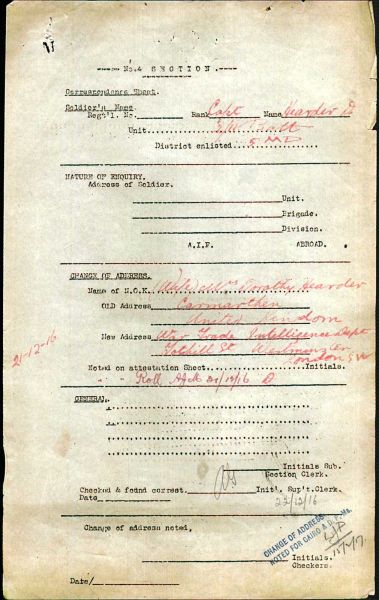 No.4 SECTION.
Correspondence Sheet.
Soldier's Name
Regt'l. No. Rank Capt Name Hearder D
Unit
District enlisted 5 MD
NATURE OF ENQUIRY.
Address of Soldier.
Unit.
Brigade.
Division.
A.I.F. ABROAD.
CHANGE OF ADDRESS.
Name of N.O.K. (Wife) Mrs Dorothy Hearder
OLD Address Carmarthen
United Kingdom
New Address War Trade Intelligence Dept
Tothill St Westminster
London S W
21-12-16
Noted on attestation Sheet Initials.
" " Roll 21/12/16
GENERAL
Initials Sub.
Section Clerk.
Checked & found correct. Init'l. Sup't. Clerk.
Date 22/12/16
Change of address noted,
CHANGE OF ADDRESS
NOTED FOR CAIRO &
Initials.
Checkers.
Date/